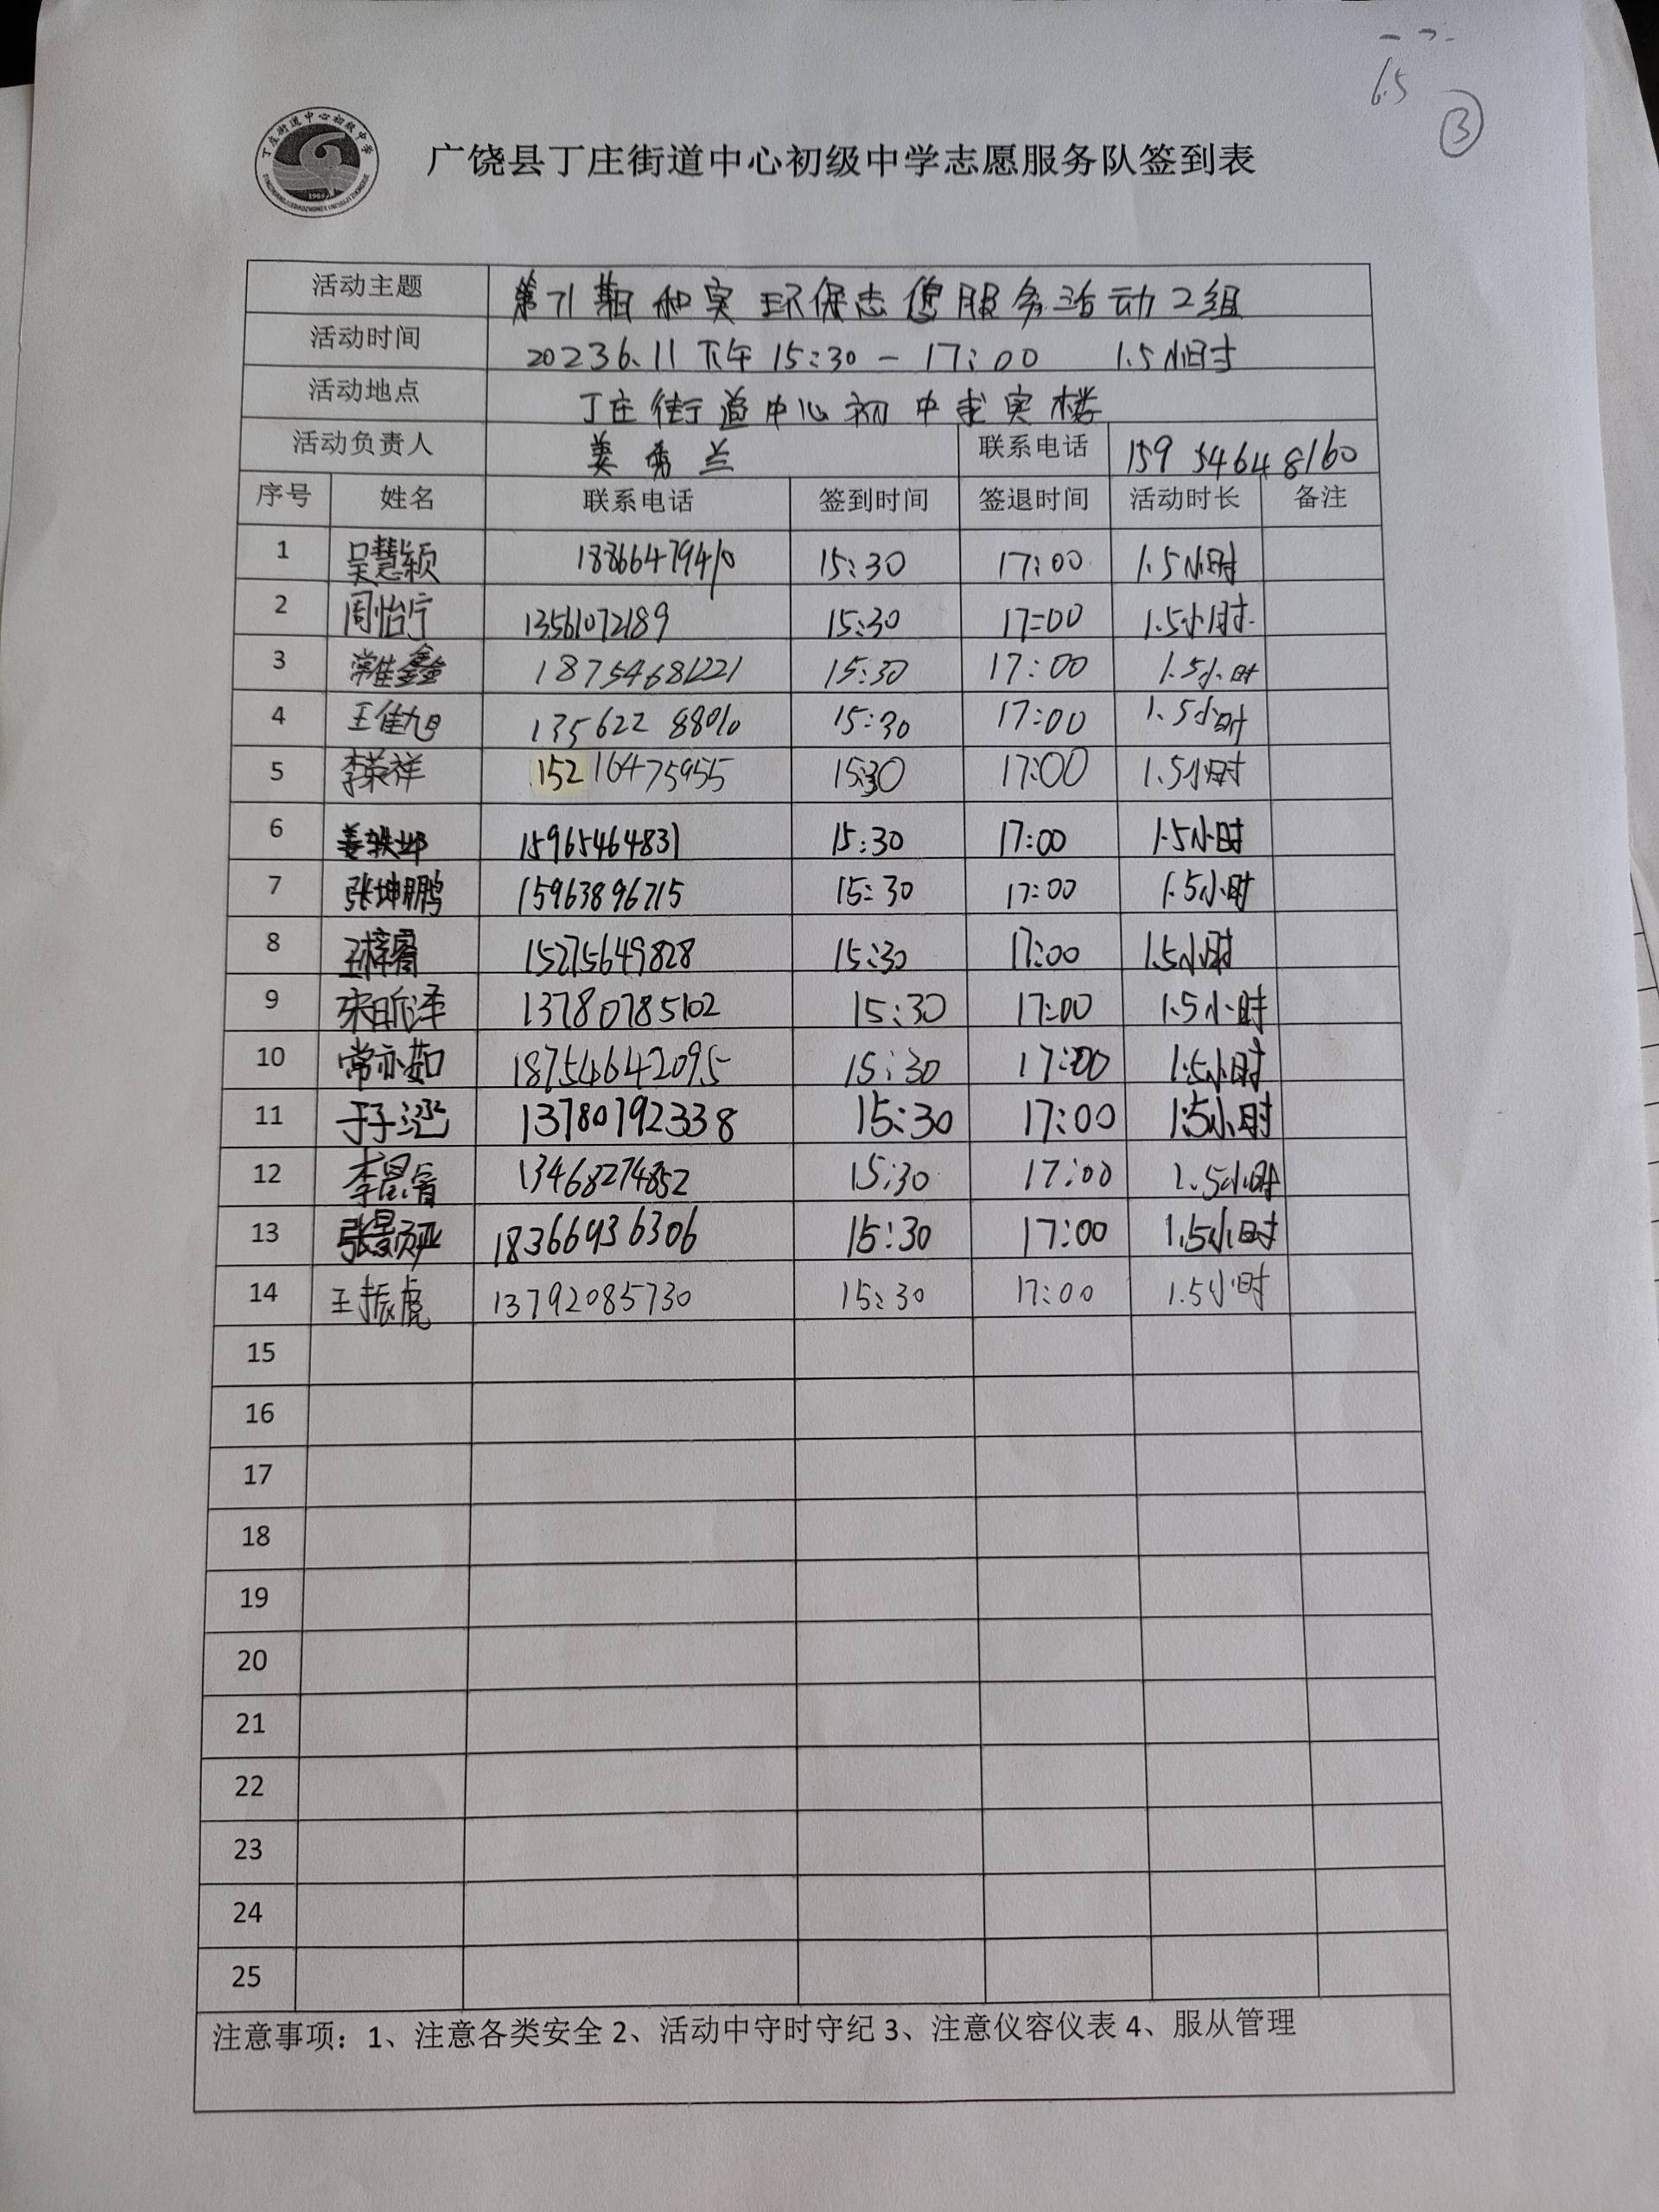 65
③
丁庄街道中心初级中学
广饶县丁庄街道中心初级中学志愿服务队签到表
活动主题 第71期和实环保志愿服务活动2组
活动时间 20236.11下午15:30-17:00 1.5小时
活动地点 丁庄街道中心初中求实楼
活动负责人 姜秀兰 联系电话 159 54648160
序号 姓名 联系电话 签到时间 签退时间 活动时长 备注
1 吴慧颖 18866479410 15:30 17:00 1.5小时
2 周怡宁 13561072189 15:30 17:00 1.5小时.
3 常佳鑫 18754681221 15:30 17:00 1.5小时
4 王佳旭 135622 88010 15:30 17:00 1.5小时
5 李荣祥 15216475955 15:30 17:00 1.5小时
6 姜轶 15965464831 15:30 17:00 1.5小时
7 张坤鹏 15963896715 15:30 17:00 1.5小时
8 王梓 15275649828 15:30 17:00 1.5小时
9 宋昕泽 13780785102 15:30 17:00 1.5小时
10 常亦茹 18754642095 15:30 17:00 1.5小时
11 于子涵 13780792338 15:30 17:00 1.5小时
12 李昱睿 13468274852 15:30 17:00 1.5小时
13 张景硕 18366936306 15:30 17:00 1.5小时
14 王振虎 13792085730 15:30 17:00 1.5小时
15
16
17
18
19
20
21
22
23
24
25
注意事项：1、注意各类安全 2、活动中守时守纪 3、注意仪容仪表 4、服从管理